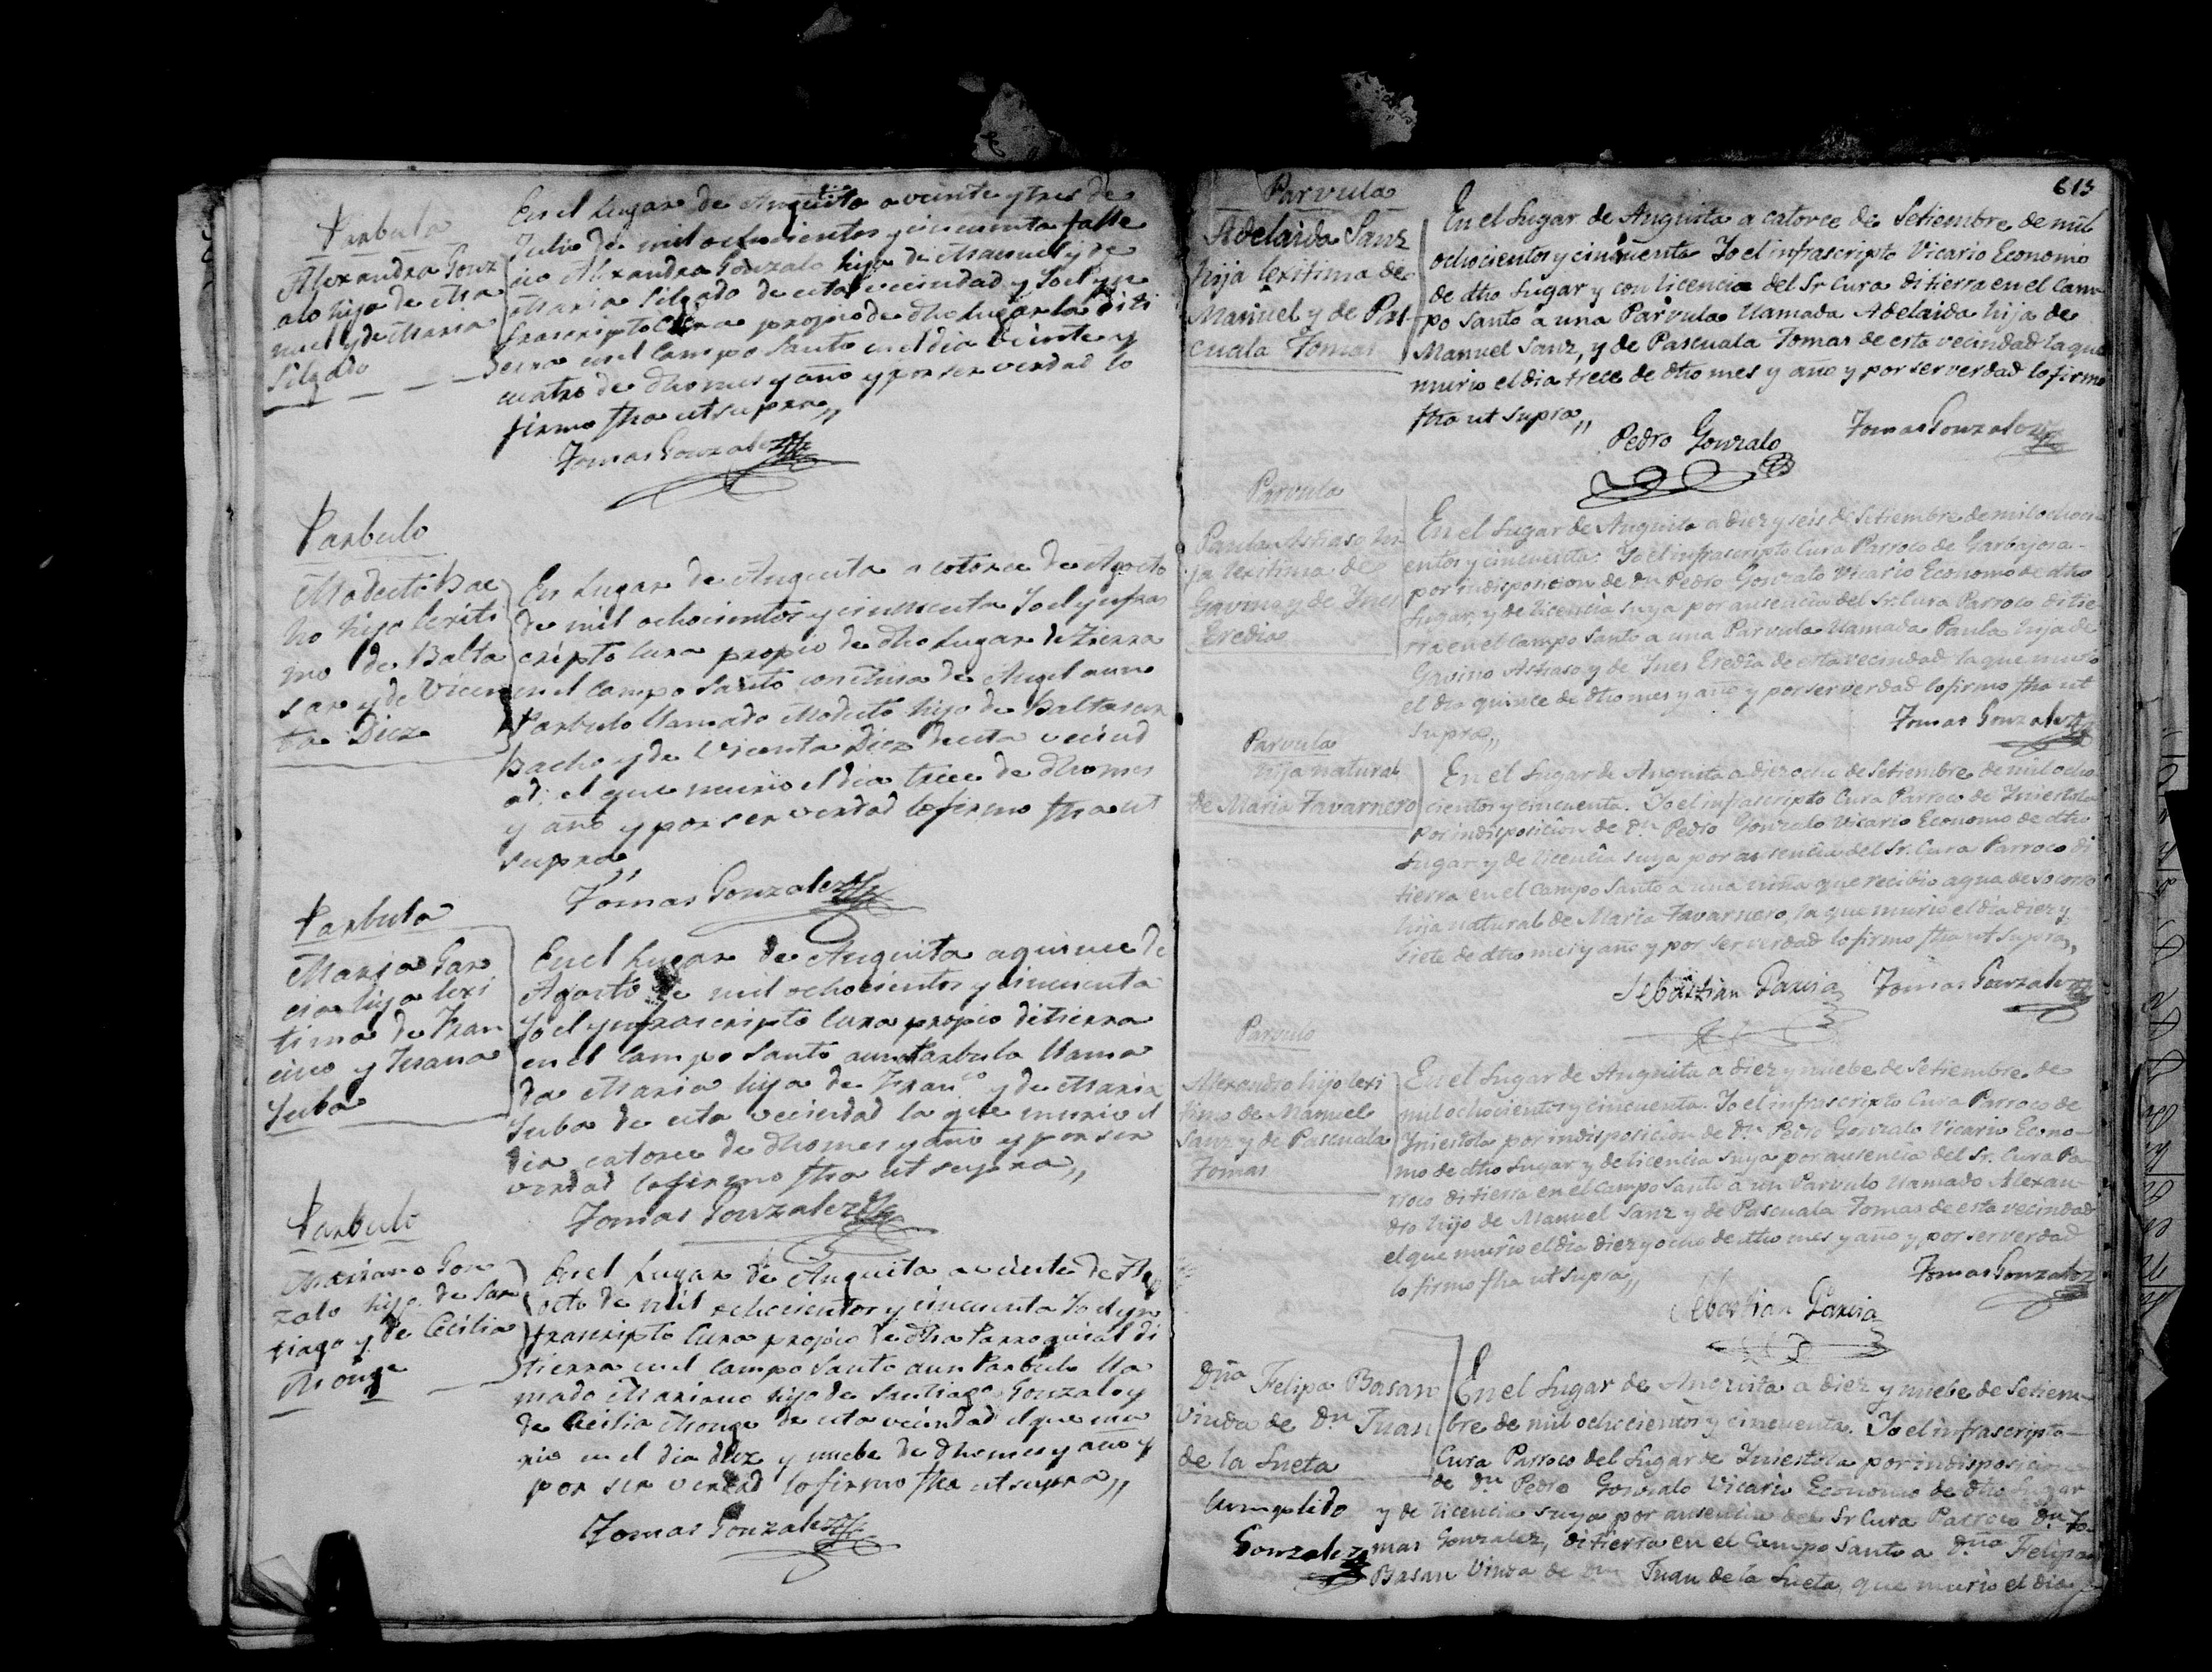 Parbula
Alexandra Gonz
alo hija de Ma
nuel y de Maria
Silgado
En el Lugar de Anguita a veinte y tres de
Julio de mil ochocientos y cincuenta falle
cio Alexandra Gonzalo hija de Manuel y de
Maria Silgado de esta vecindad y Yo el yn
frascripto Cura propio de dho Lugar la di ti
erra en el Campo Santo en el dia veinte y
cuatro de dho mes y año y por ser verdad lo
firmo fha ut supra,,
Tomas Gonzalez
Parbulo
Modesto Bac
ho hijo lexiti
mo de Balta
sar y de Vicen
ta Diez
En Lugar de Anguita a catorce de Agosto
de mil ochocientos y cincuenta Yo el ynfras
cripto Cura propio de dho Lugar di tierra
en el Campo Santo con Misa de Angel a un
Parbulo llamado Modesto hijo de Baltasar
Bacho y de Vicenta Diez de esta vecind
ad. el que murio el dia trece de dho mes
y año y por ser verdad lo firmo fha ut
supra,,
Tomas Gonzalez
Parbula
Maria Gar
cia hija lexi
tima de Fran
cisco y Juana
Juba
En el Lugar de Anguita a quince de
Agosto de mil ochocientos y cincuenta
Yo el ynfrascripto Cura propio di tierra
en el Campo Santo a un Parbula llama
da Maria hija de Fran.co y de Maria
Juba de esta vecindad la que murio el
dia catorce de dho mes y año y por ser
verdad lo firmo fha ut supra,,
Tomas Gonzalez
Parbulo
Mariano Gon
zalo hijo de San
tiago y de Cecilia
Monge
En el Lugar de Anguita a veinte de Ag
osto de mil ochocientos y cincuenta Yo el yn
frascripto Cura propio de dha Parroquial di
tierra en el Campo Santo a un Parbulo lla
mado Mariano hijo de Santiago Gonzalo y
de Cecilia Monge de esta vecindad el que mu
rio en el dia diez y nuebe de dho mes y año y
por ser verdad lo firmo fha ut supra,,
Tomas Gonzalez
613
Parvula
Adelaida Sanz
hija lexitima de
Manuel y de Pas
cuala Tomas
En el Lugar de Anguita a catorce de Setiembre de mil
ochocientos y cincuenta Yo el infrascripto Vicario Economo
de dho Lugar y con licencia del Sr Cura di tierra en el Cam-
po Santo a una Parvula llamada Adelaida hija de
Manuel Sanz, y de Pascuala Tomas de esta vecindad la que
murio el dia trece de dho mes y año y por ser verdad lo firmo
fha ut supra,,
Pedro Gonzalo
Tomas Gonzalez
Parvula
Paula Astraso hi
ja lexitima de
Gavino y de Ines
Eredia
En el Lugar de Anguita a diez y seis de Setiembre de mil ochoci-
entos y cincuenta. Yo el infrascripto Cura Parroco de Garbajosa
por indisposicion de Dn Pedro Gonzalo Vicario Economo de dho
Lugar, y de licencia suya por ausencia del Sr. Cura Parroco di tie-
rra en el Campo Santo a una Parvula llamada Paula hija de
Gavino Astraso y de Ines Eredia de esta vecindad la que murio
el dia quince de dho mes y año y por ser verdad lo firmo fha ut
supra,,
Tomas Gonzalez
Parvula
hija natural
de Maria Tavarnero
En el Lugar de Anguita a diez ocho de Setiembre de mil ocho
cientos y cincuenta. Yo el infrascripto Cura Parroco de Yniestola
por indisposicion de Dn Pedro Gonzalo Vicario Economo de dho
Lugar y de licencia suya por ausencia del Sr. Cura Parroco di
tierra en el Campo Santo a una niña que recibio agua de socorro
hija natural de Maria Tavarnero, la que murio el dia diez y
siete de dho mes y año y por ser verdad lo firmo fha ut supra,,
Sebastian Garcia
Tomas Gonzalez
Parvulo
Alexandro hijo lexi
timo de Manuel
Sanz y de Pascuala
Tomas
En el Lugar de Anguita a diez y nuebe de Setiembre de
mil ochocientos y cincuenta. Yo el infrascripto Cura Parroco de
Yniestola por indisposicion de Dn Pedro Gonzalo Vicario Econo-
mo de dho Lugar y de licencia suya por ausencia del Sr. Cura Pa-
rroco di tierra en el Campo Santo a un Parvulo llamado Alexan-
dro hijo de Manuel Sanz y de Pascuala Tomas de esta vecindad
el que murio el dia diez y ocho de dho mes y año y por ser verdad
lo firmo fha ut supra,,
Tomas Gonzalez
Sebastian Garcia
Dña Felipa Basan
Viuda de Dn Juan
de la Lueta
Cumplido
Gonzalez
En el Lugar de Anguita a diez y nuebe de Setiem-
bre de mil ochocientos y cincuenta. Yo el infrascripto
Cura Parroco del Lugar de Yniestola por indisposicion
de Dn Pedro Gonzalo Vicario Economo de dho Lugar
y de licencia suya por ausencia del Sr Cura Parroco Dn To-
mas Gonzalez, di tierra en el Campo Santo a Dña Felipa
Basan Viuda de Dn Juan de la Lueta, que murio el dia